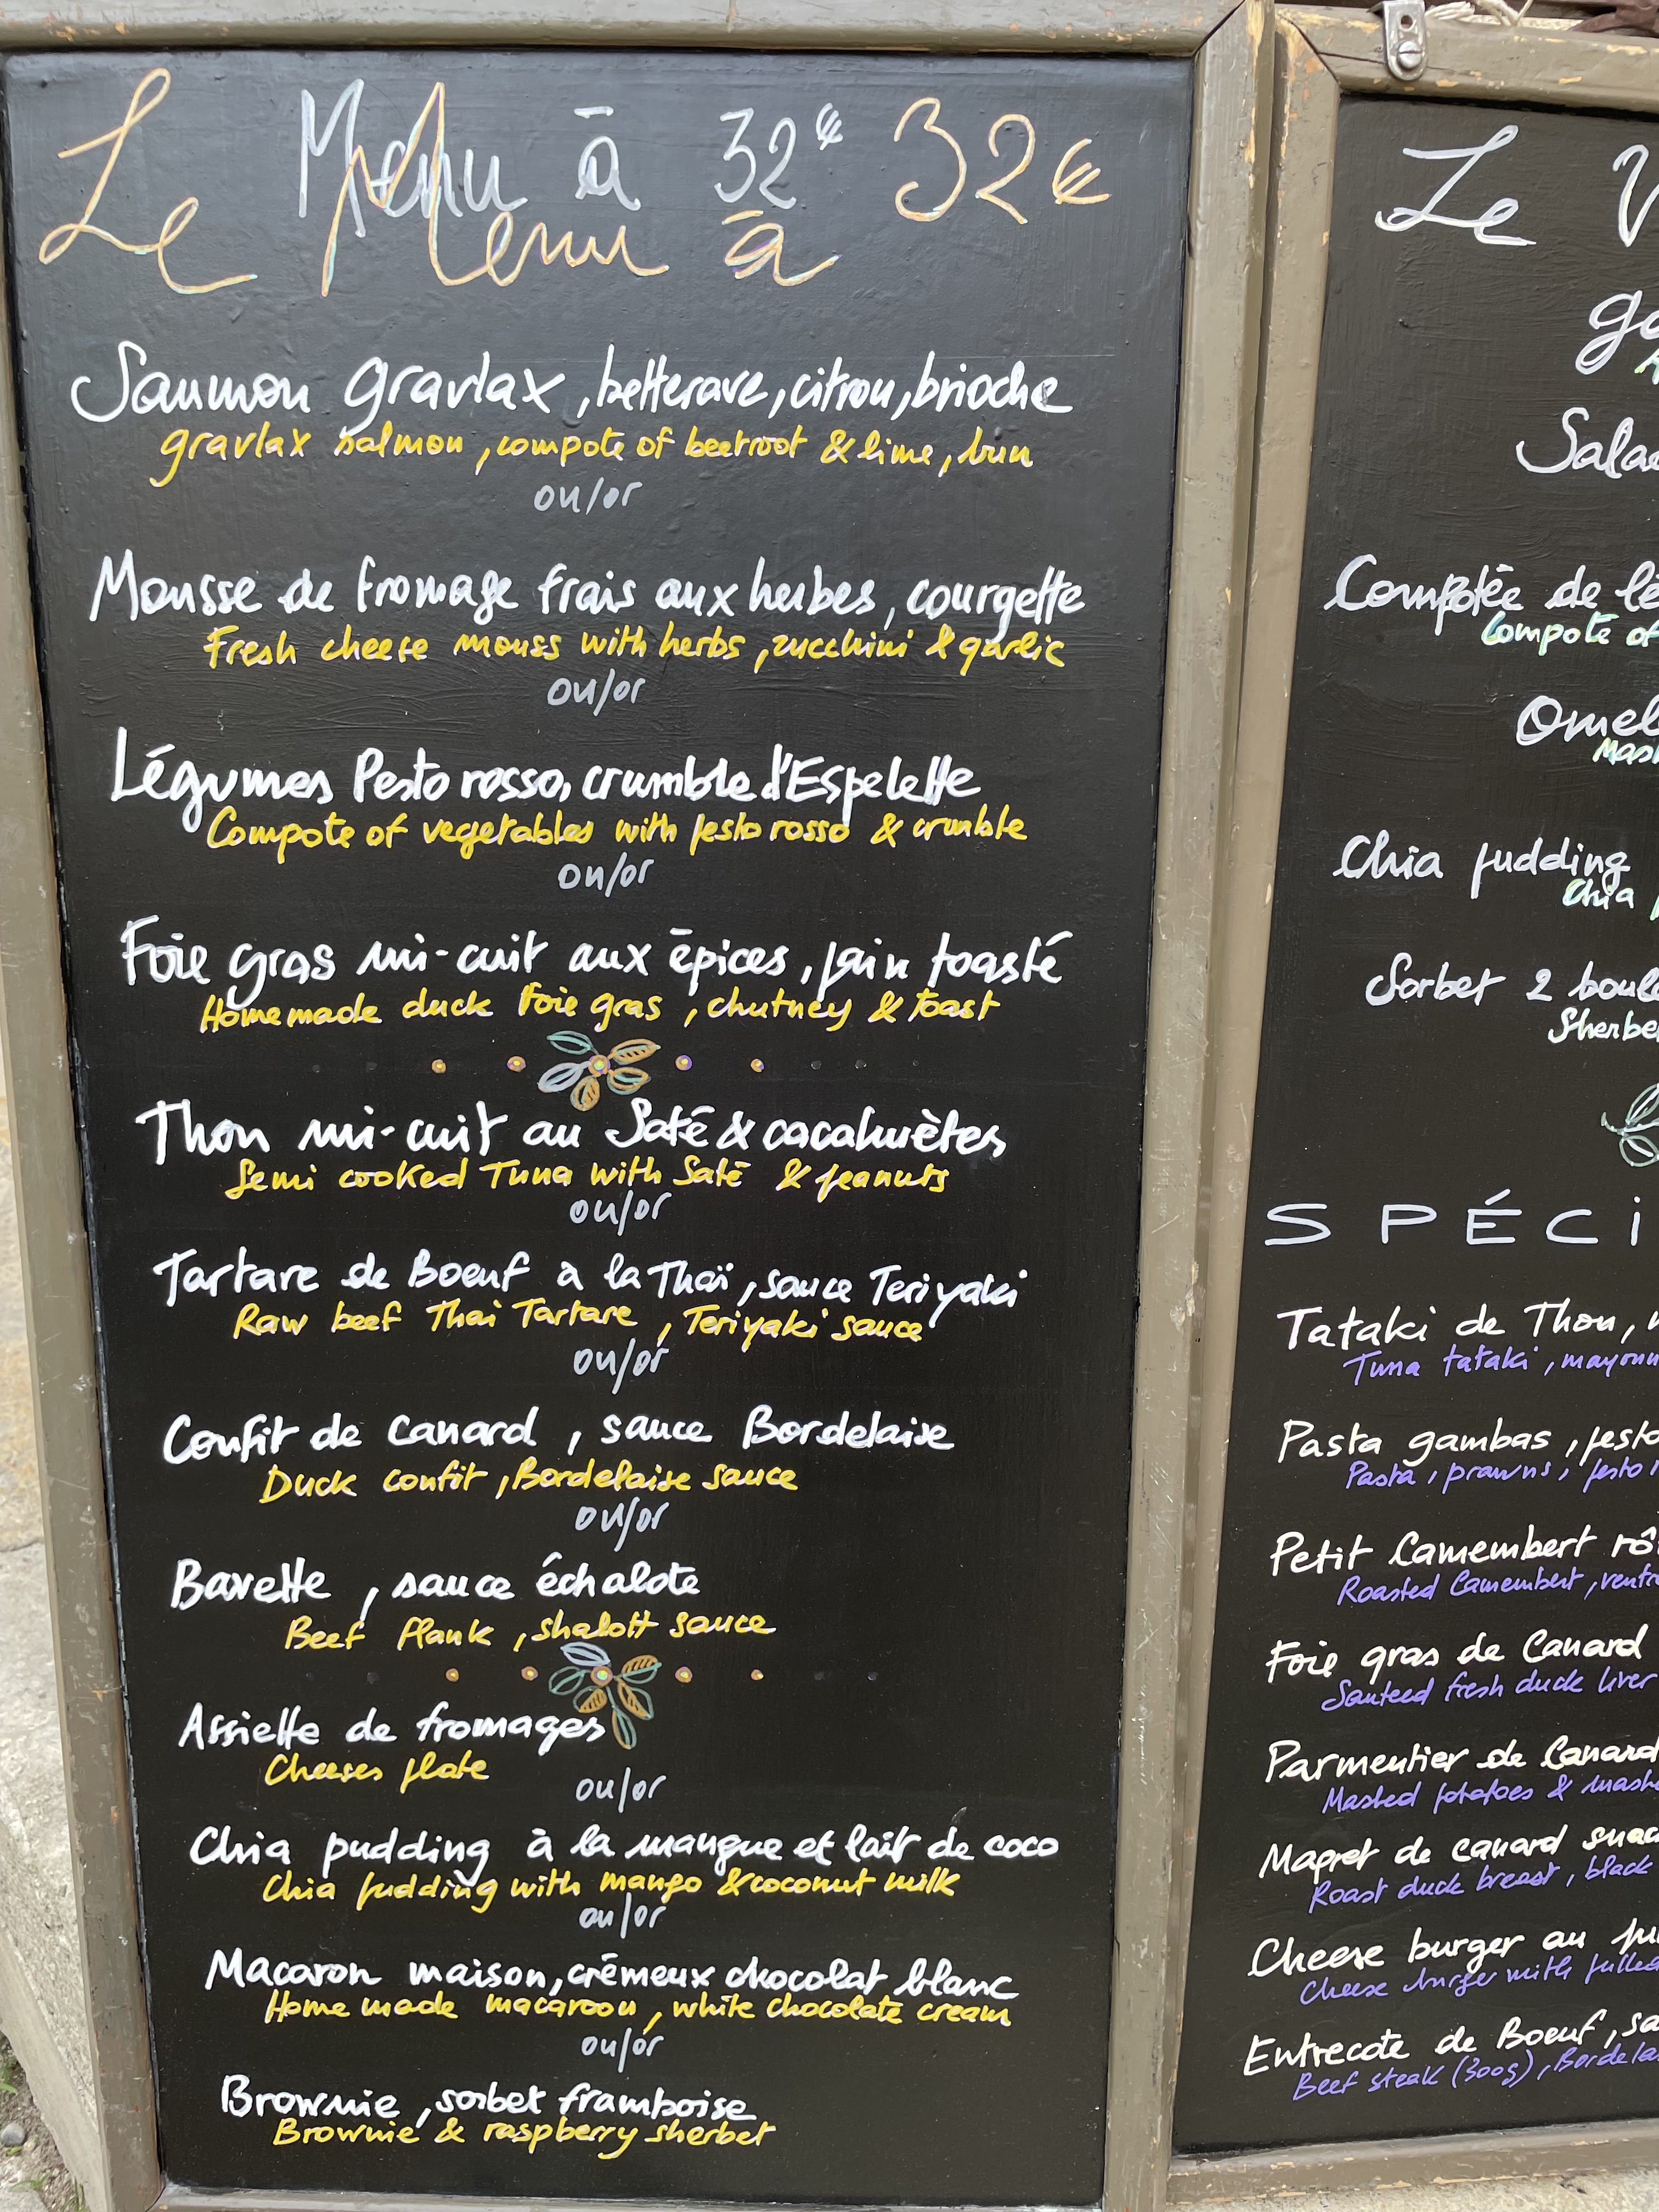 Le Menu à 32€ 32€
Menu à
Saumon gravlax, betterave, citron, brioche
gravlax salmon, compote of beetroot & lime, bun
ou/or
Mousse de fromage frais aux herbes, courgette
Fresh cheese mouss with herbs, zucchini & garlic
ou/or
Légumes Pesto rosso, crumble d'Espelette
Compote of vegetables with pesto rosso & crumble
ou/or
Foie gras mi-cuit aux épices, pain toasté
Homemade duck Foie gras, chutney & toast
Thon mi-cuit au Saté & cacahuètes
Semi cooked Tuna with Saté & peanuts
ou/or
Tartare de Boeuf à la Thaï, sauce Teriyaki
Raw beef Thai Tartare, Teriyaki sauce
ou/or
Confit de Canard, sauce Bordelaise
Duck confit, Bordelaise sauce
ou/or
Bavette, sauce échalote
Beef flank, shalott sauce
Assiette de fromages
Cheeses plate
ou/or
Chia pudding à la mangue et lait de coco
Chia pudding with mango & coconut milk
ou/or
Macaron maison, crémeux chocolat blanc
Home made macaroon, white chocolate cream
ou/or
Brownie, sorbet framboise
Brownie & raspberry sherbet
Le V
ga
Salad
Compotée de lé
Compote of
Omel
Mash
Chia pudding
Chia p
Sorbet 2 boule
Sherbe
SPÉCI
Tataki de Thon,
Tuna tataki, mayonn
Pasta gambas, pesto
Pasta, prawns, pesto r
Petit Camembert rô
Roasted Camembert, ventr
Foie gras de Canard
Sauteed fresh duck liver
Parmentier de Canard
Mashed potatoes & mash
Magret de canard snac
Roast duck breast, black
Cheese burger au pu
Cheese burger with pulled
Entrecote de Boeuf, sa
Beef steak (300g), Bordela